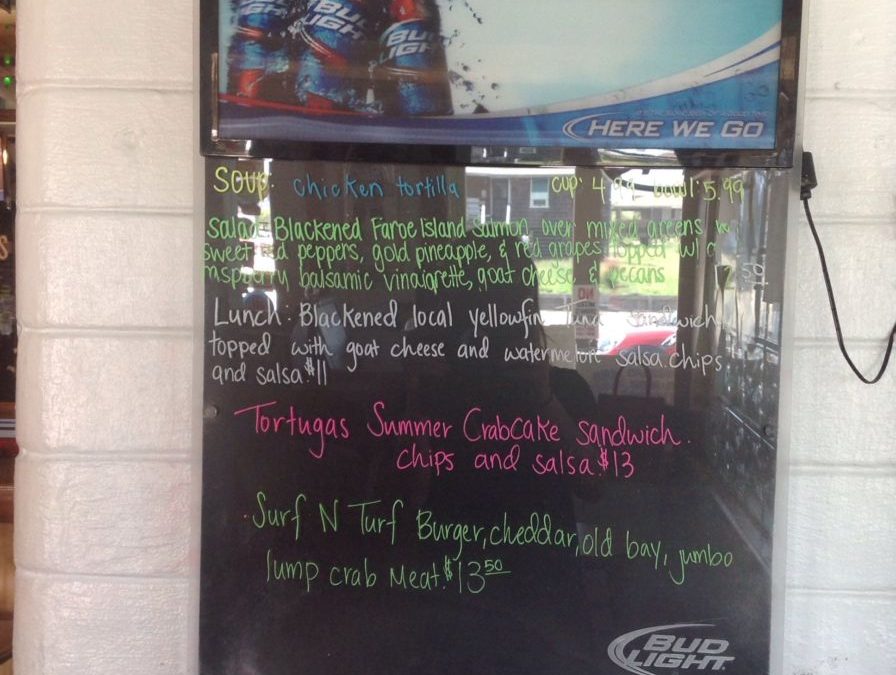 BUD LIGHT
BUD LIGHT
HERE WE GO
Soup: chicken tortilla cup: 4.99 bowl: 5.99
Salad: Blackened Faroe Island Salmon, over mixed greens w/
sweet red peppers, gold pineapple, & red grapes topped w/ a
raspberry balsamic vinaigrette, goat cheese & pecans
Lunch: Blackened local yellowfin tuna sandwich
topped with goat cheese and watermelon salsa. chips
and salsa. $11
Tortugas Summer Crabcake sandwich.
chips and salsa. $13
Surf N Turf Burger, cheddar, old bay, jumbo
lump crab Meat. $13 50
BUD LIGHT